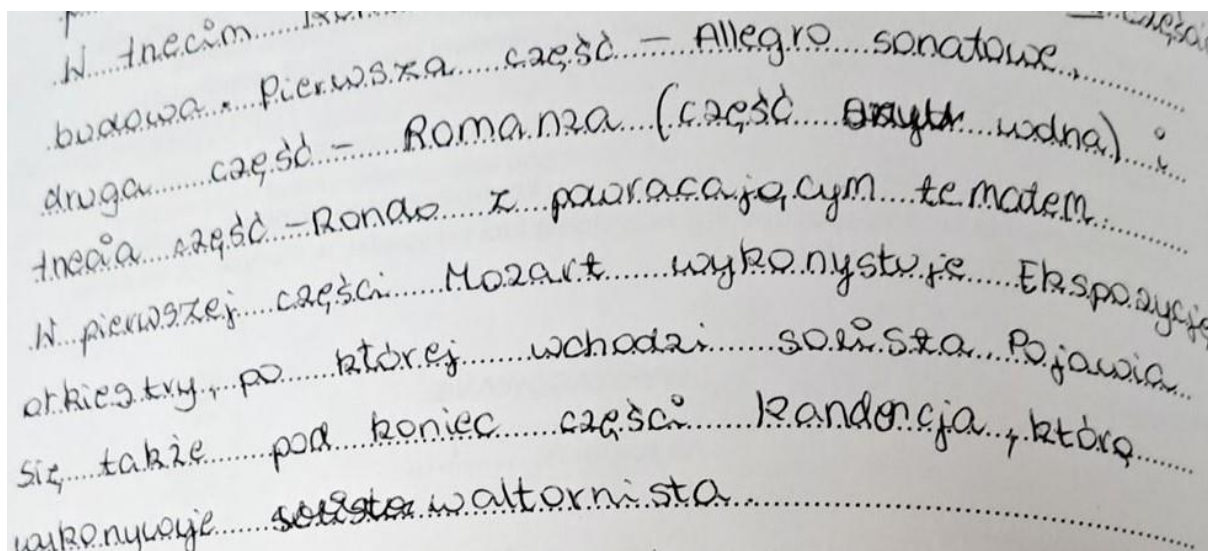 W trzecim
części
budowa. Pierwsza część – Allegro sonatowe,
druga część – Romanza (część wolna) i
trzecia część – Rondo z powracającym tematem.
W pierwszej części Mozart wykorzystuje Ekspozycję
orkiestry, po której wchodzi solista. Pojawia
się także pod koniec części kandencja, którą
wykonywuje waltornista.